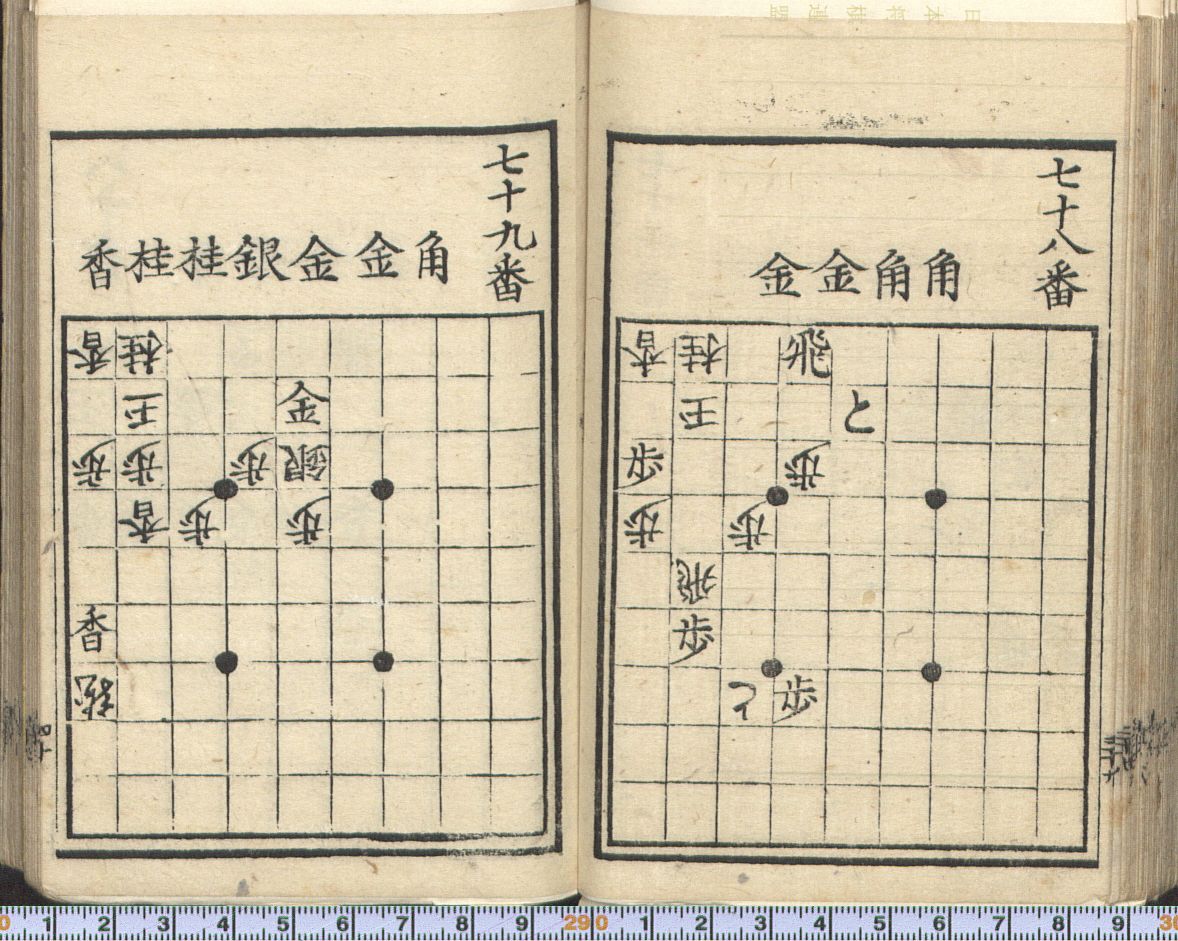 七十八番
角角金金
香桂飛
王と
歩歩
歩歩
飛
歩
と歩
七十九番
角金金銀桂桂香
香桂
王金
歩歩歩銀
香歩歩
香
0 1 2 3 4 5 6 7 8 9 290 1 2 3 4 5 6 7 8 9 30